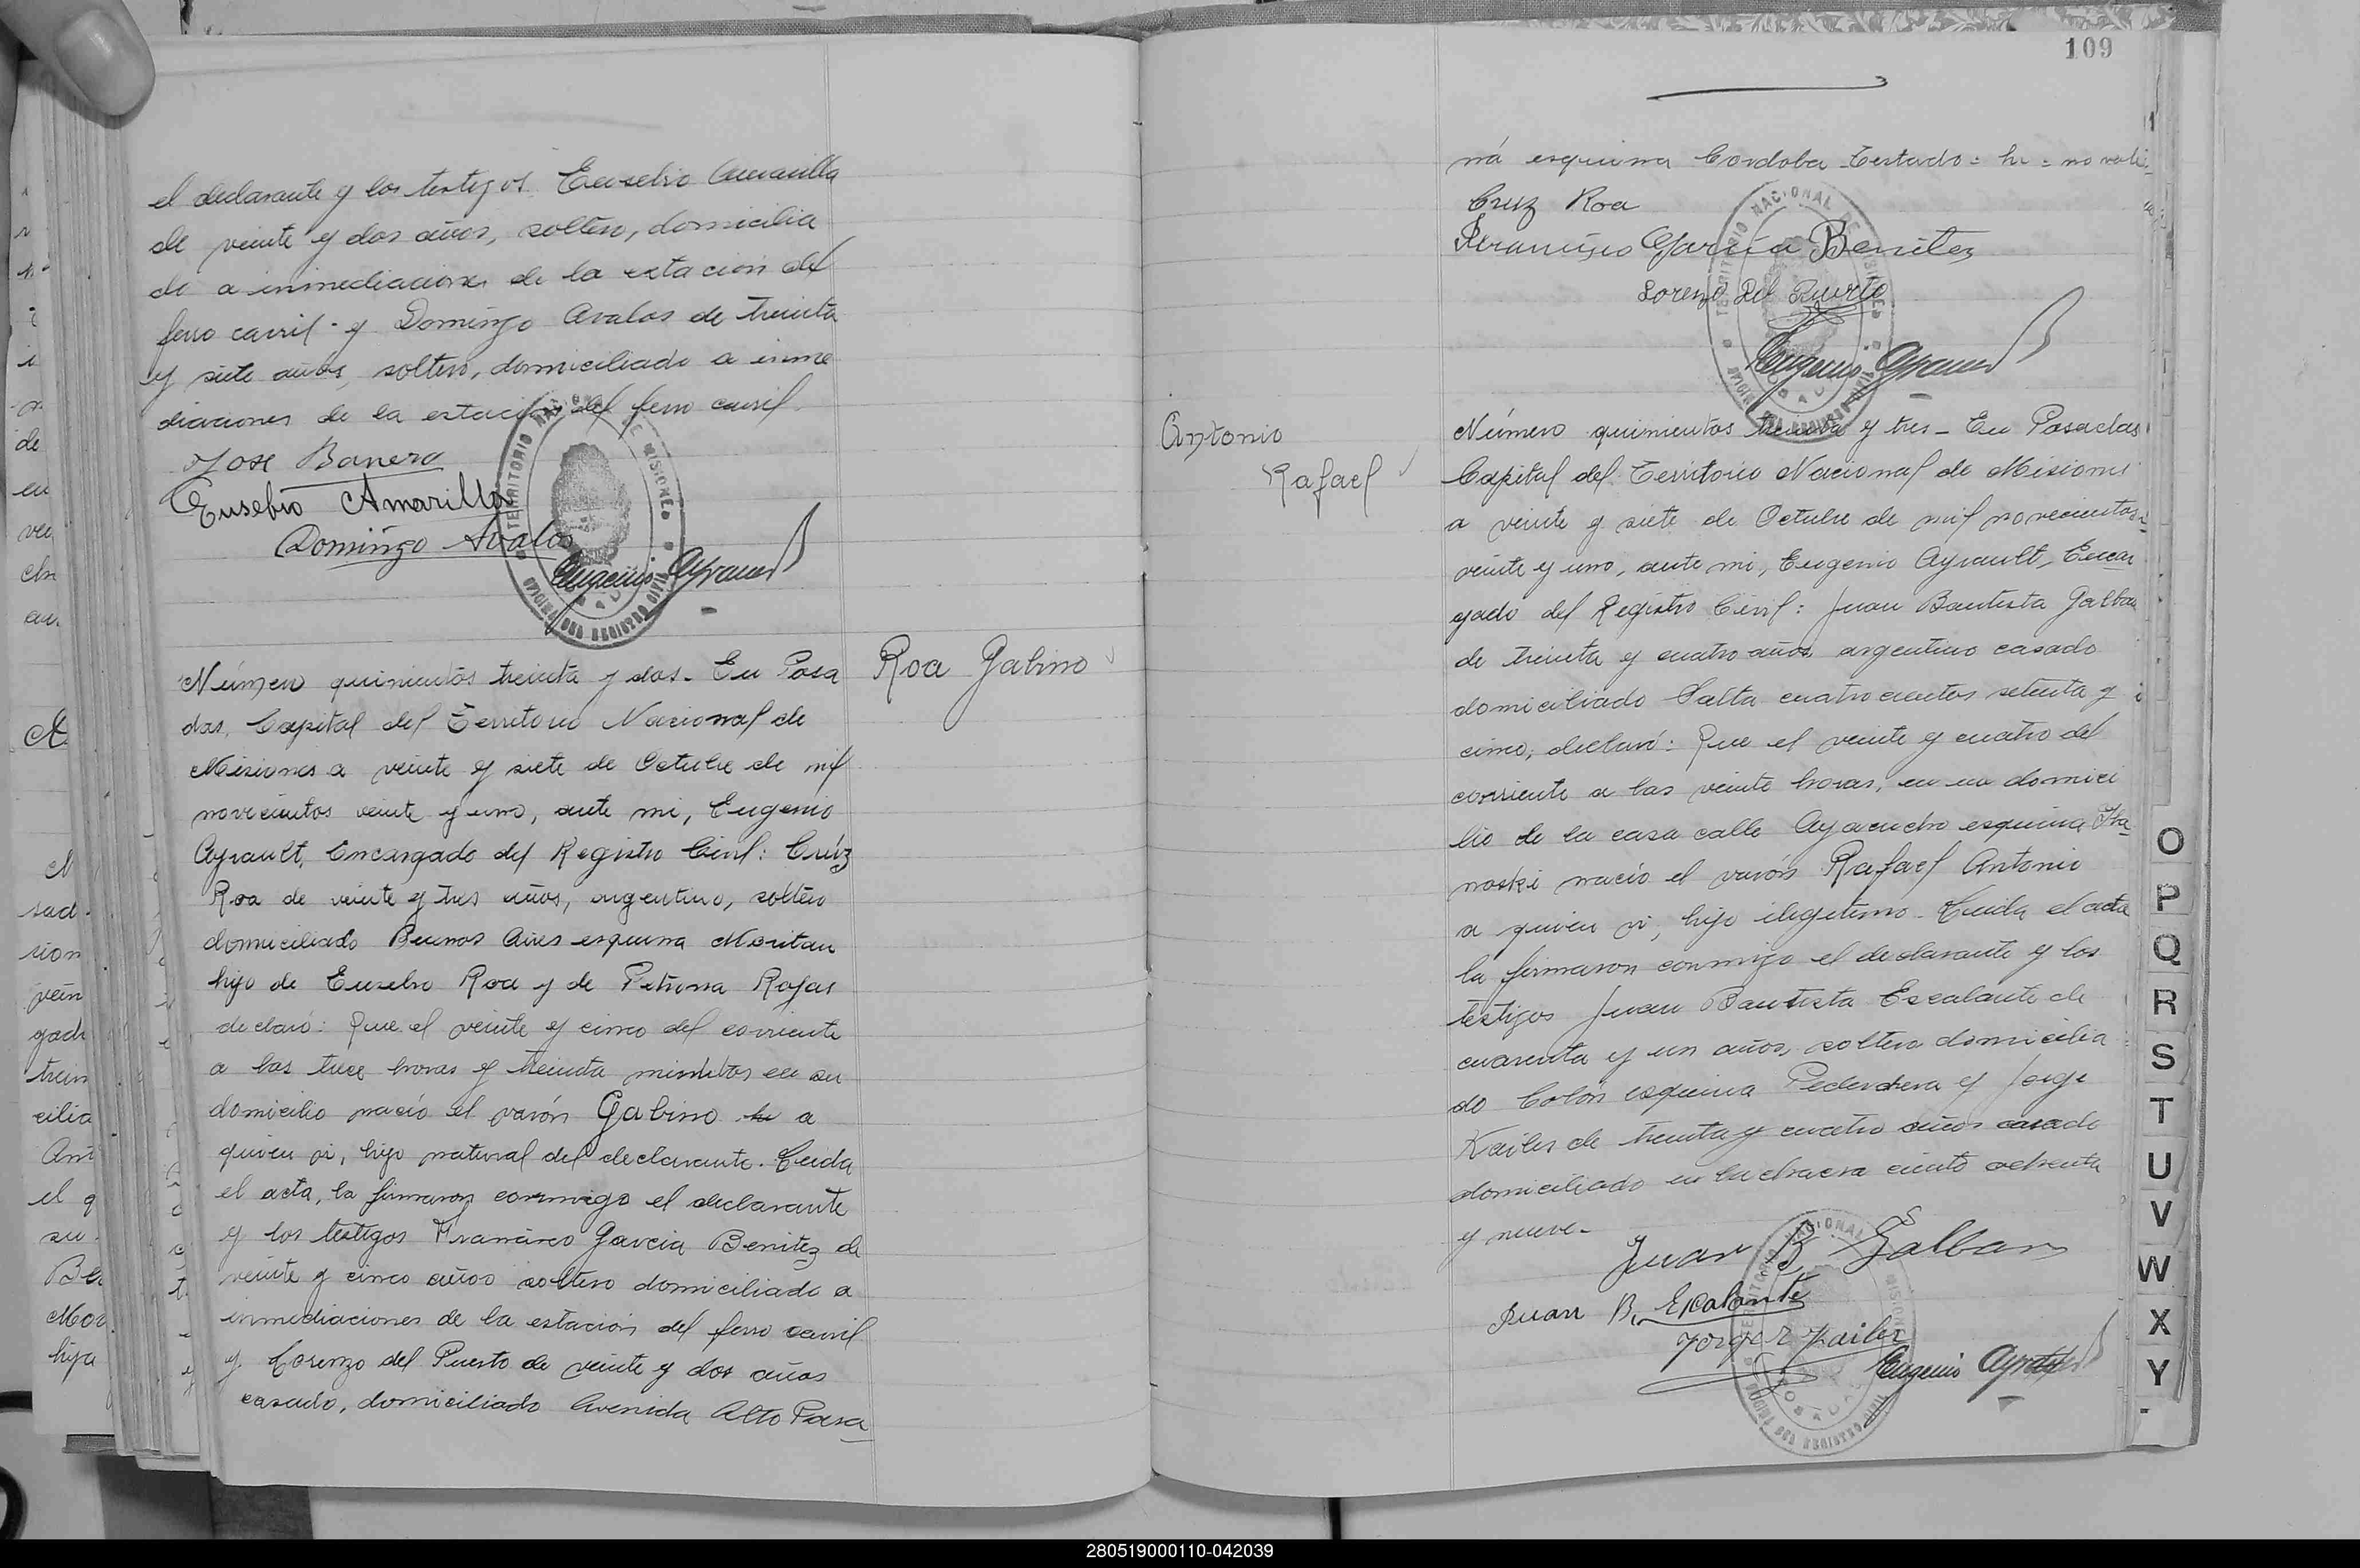 el declarante y los testigos Eusebio Amarilla
de veinte y dos años, soltero, domicilia
do a inmediaciones de la estacion del
ferro carril - y Domingo Avalos de treinta
y siete años, soltero, domiciliado a inme
diaciones de la estación del ferro carril
Jose Banera
Eusebio Amarilla
Domingo Avalos
Eugenio Ayrault
Roa Gabino
Número quinientos treinta y dos - En Posa
das, Capital del Territorio Nacional de
Misiones a veinte y siete de Octubre de mil
novecientos veinte y uno, ante mi, Eugenio
Ayrault, Encargado del Registro Civil: Crúz
Roa de veinte y tres años, argentino, soltero
domiciliado Buenos Aires esquina
hijo de Eusebio Roa y de Petrona Rojas
declaró: Que el veinte y cinco del corriente
a las trece horas y treinta minutos en su
domicilio nació el varón Gabino hi a
quien vi, hijo natural del declarante. Leida
el acta, la firmaron conmigo el declarante
y los testigos Francisco Garcia Benitez de
veinte y cinco años soltero domiciliado a
inmediaciones de la estación del ferro carril
y Lorenzo del Puerto de veinte y dos años
casado, domiciliado Avenida Alto Para
109
ná esquina Cordoba - Testado = hi = no vale
Cruz Roa
Francisco Garcia Benites
Lorenzo Del Puerto
Eugenio Ayrault
Antonio
Rafael
Número quinientos treinta y tres - En Posadas
Capital del Territorio Nacional de Misiones
a veinte y siete de Octubre de mil novecientos
veinte y uno, ante mi, Eugenio Ayrault, Encar
gado del Registro Civil: Juan Bautista Galban
de treinta y cuatro años, argentino casado
domiciliado Salta cuatrocientos setenta y
cinco, declaró: Que el veinte y cuatro del
corriente a las veinte horas, en su domici
lio de la casa calle Ayacucho esquina
nació el varón Rafael Antonio
a quien vi, hijo ilegitimo - Leida el acta
la firmaron conmigo el declarante y los
testigos Juan Bautista Escalante de
cuarenta y un años, soltero domicilia
do Colón esquina Pedernera y Jorge
Kailer de treinta y cuatro años casado
domiciliado en la chacra ciento ochenta
y nueve -
Juan B. Galban
Juan B. Escalante
Jorge R Kailer
Eugenio Ayrault
TERRITORIO NACIONAL DE MISIONES
OFICINA DEL REGISTRO CIVIL
POSADAS
O
P
Q
R
S
T
U
V
W
X
Y
280519000110-042039